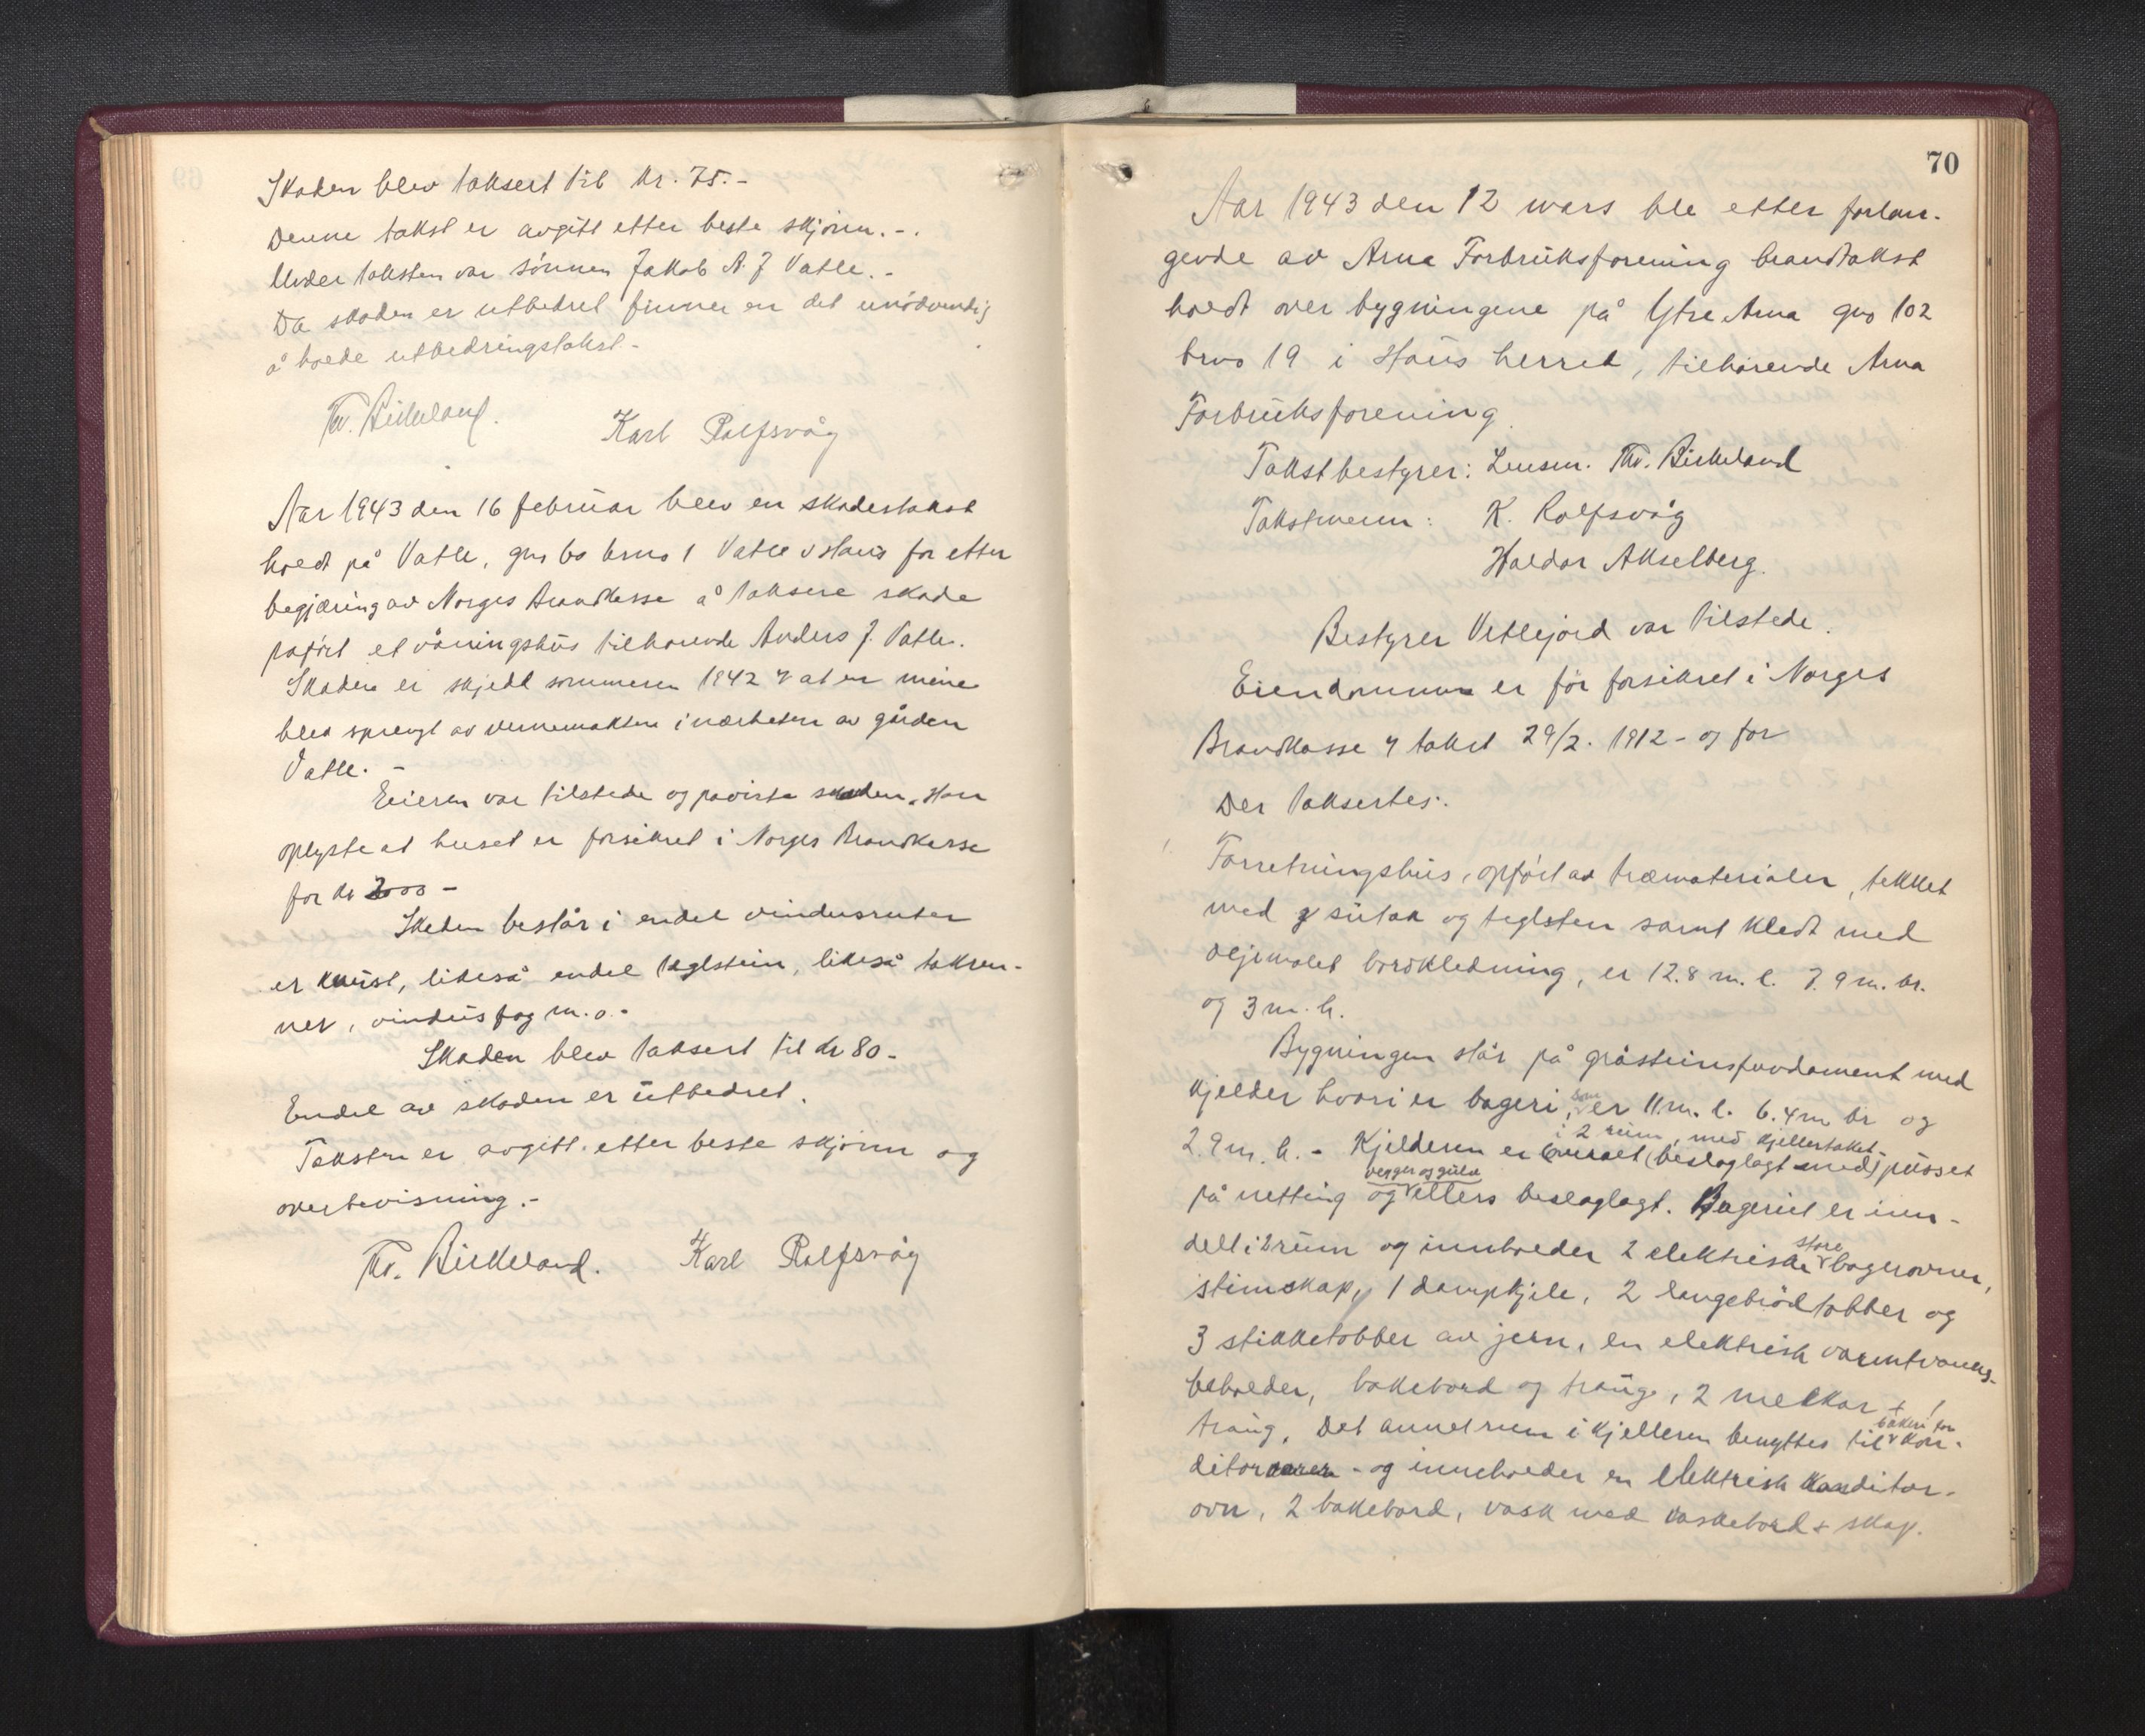 Skaden blev taksert til kr. 75.-
Denne takst er avgitt etter beste skjønn.-.
Under taksten var sønnen Jakob A. J Vatle.-
Da skaden er utbedret finner en det unødvendig
å holde utbedringstakst.-
Th. Birkeland. Karl Rolfsvåg
Aar 1943 den 16 februar blev en skadestakst
holdt på Vatle, gno 60 bruno 1 Vatle i Haus for etter
begjæring av Norges Brandkasse å taksere skade
påført et våningshus tilhørende Anders J. Vatle.
Skaden er skjedd sommeren 1942 v at en mine
blev sprengt av vernemakten i nærheten av gården
Vatle. -
Eieren var tilstede og påviste skaden. Han
oplyste at huset er forsikret i Norges Brandkasse
for kr 2000 -
Skaden består i endel vindusruter
er knust, likeså endel taglstein, likeså takren-
ner, vindusfag m.o.-
Skaden blev taksert til kr 80-
Endel av skaden er utbedret.
Taksten er avgitt etter beste skjønn og
overbevisning.-
Th. Birkeland. Karl Rolfsvåg
70
Aar 1943 den 12 mars ble etter forlan-
gende av Arna Forbruksforening brandtakst
holdt over bygningene på Ytre Arna gno 102
brno 19 i Haus herred, tilhørende Arna
Forbruksforening
Takstbestyrer: Lensm. Th. Birkeland
Takstmenn: K. Rolfsvåg
Haldor Akselberg.
Bestyrer Vetlejord var tilstede.
Eiendommen er før forsikret i Norges
Brandkasse v takst 29/2. 1912 - og for
Der taksertes:
Forretningshus, opført av træmaterialer, tekket
med sutak og teglsten samt kledt med
oljemalet bordkledning, er 12.8 m. l. 7.9 m. br.
og 3 m. h.
Bygningen står på gråsteinsfundament med
kjelder hvori er bageri, som er 11 m. l. 6.4 m br og
i 2 rum, med kjellertaket
2.9 m. h. - Kjelderen er (beslaglagt med) pusset
vegger og gulv
på netting og ellers beslaglagt. Bageriet er inn-
store
delt i 2 rum og inneholder 2 elektriske bagerovner,
stimskap, 1 dampkjele, 2 langebrødtobber og
3 stikketobber av jern, en elektrisk varmtvanns-
beholder, bakebord og traug, 2 melkar + 1
bakeri for
traug. Det annet rum i kjelleren benyttes til kon-
ditorvarer - og inneholder en elektrisk konditor-
ovn, 2 bakebord, vask med vaskebord + skap.